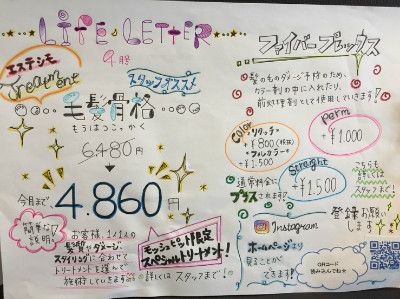 LIFE LETTER
9階
エステシモ
Treatment
スタッフオススメ
毛髪骨格
もうはつこっかく
6.480円
今月まで
4.860円
簡単なご説明♪
お客様1人1人の
髪質やダメージ、
スタイリングに合わせて
トリートメントを選んで
施術していきます
モッシュピット限定
スペシャルトリートメント!
詳しくはスタッフまで!
ファイバープレックス
髪のダメージ予防のため、
カラー剤の中に入れたり、
前処理剤として使用していきます!
Color
リタッチ
+¥800(税抜)
フルカラー
+¥1.500
Perm
+¥1.000
Straight
+¥1.500
通常料金に
プラスされます!
こちらも
詳しくは
スタッフまで!
Instagram
登録お願いします
ホームページより
見ることが
できます!
QRコード
読み込んでね☆